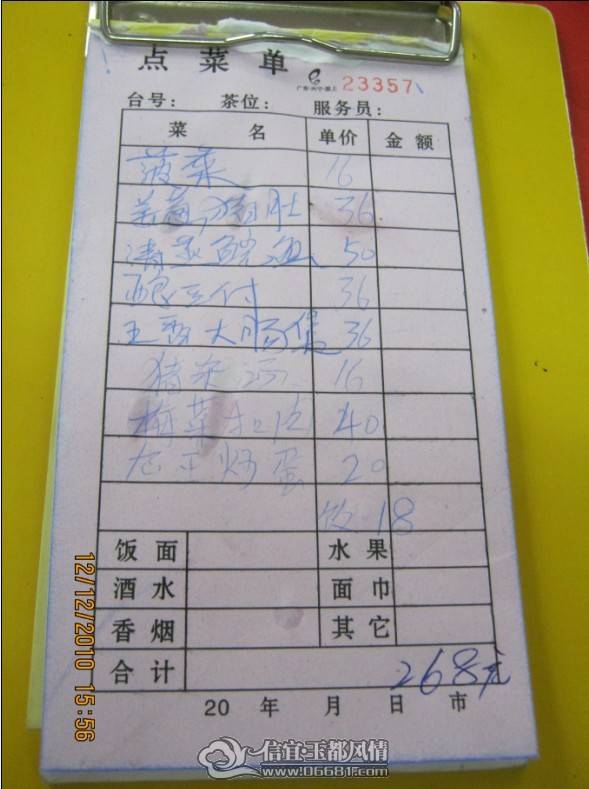 点菜单
23357
台号： 茶位： 服务员：
菜名 单价 金额
菠菜 16
猪肚 36
清蒸鲩鱼 50
酿豆付 36
五香大肠煲 36
猪杂汤 16
梅菜扣肉 40
炒蛋 20
饭 18
饭面 水果
酒水 面巾
香烟 其它
合计 268元
20 年 月 日 市
12/12/2010 15:56
信宜玉都风情
www.06681.com